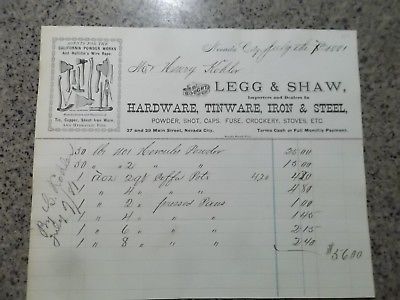 AGENTS FOR THE
CALIFORNIA POWDER WORKS
And Hallidie's Wire Rope.
Tin, Copper, Sheet Iron Ware,
And Hydraulic Pipe.
Nevada City, July the 7th 1881
Mr Henry Kohler
Bought of
LEGG & SHAW,
Importers and Dealers in
HARDWARE, TINWARE, IRON & STEEL,
POWDER, SHOT, CAPS, FUSE, CROCKERY, STOVES, ETC.
27 and 29 Main Street, Nevada City.
Terms Cash or Full Monthly Payment.
50 lb no1 Hercules Powder 25.00
50 " 2 " " 15.00
1 doz 2qt Coffee Pots 4.20
1 " 4 " " " 4.80
1 " 2 " pressed Pans 1.00
1 " 4 " " 1.45
1 " 6 " " 2.15
1 " 8 " " 2.40
$56.00